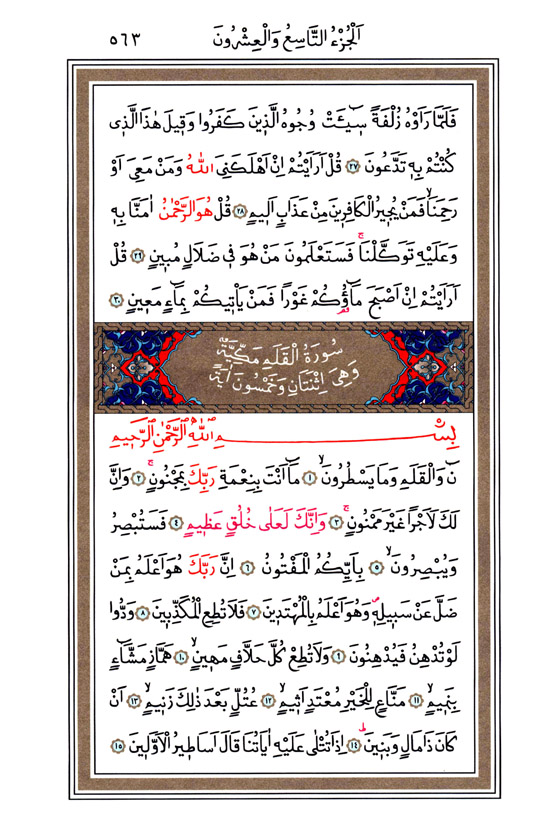 اَلْجُزْءُ التَّاسِعُ وَالْعِشْرُونَ ٥٦٣
فَلَمَّا رَاَوْهُ زُلْفَةً سٖٓيـَٔتْ وُجُوهُ الَّذٖينَ كَفَرُوا وَقٖيلَ هٰذَا الَّذٖى
كُنْتُمْ بِهٖ تَدَّعُونَ ﴿٢٧﴾ قُلْ اَرَاَيْتُمْ اِنْ اَهْلَكَنِىَ اللّٰهُ وَمَنْ مَعِىَ اَوْ
رَحِمَنَاۙ فَمَنْ يُجٖيرُ الْكَافِرٖينَ مِنْ عَذَابٍ اَلٖيمٍ ﴿٢٨﴾ قُلْ هُوَ الرَّحْمٰنُ اٰمَنَّا بِهٖ
وَعَلَيْهِ تَوَكَّلْنَاۚ فَسَتَعْلَمُونَ مَنْ هُوَ فٖى ضَلَالٍ مُبٖينٍ ﴿٢٩﴾ قُلْ
اَرَاَيْتُمْ اِنْ اَصْبَحَ مَٓاؤُ۬كُمْ غَوْرًا فَمَنْ يَاْتٖيكُمْ بِمَٓاءٍ مَعٖينٍ ﴿٣٠﴾
سُورَةُ الْقَلَمِ مَكِّيَّةٌ
وَهِىَ اِثْنَتَانِ وَخَمْسُونَ اٰيَةً
بِسْمِ اللّٰهِ الرَّحْمٰنِ الرَّحٖيمِ
نٓ وَالْقَلَمِ وَمَا يَسْطُرُونَۙ ﴿١﴾ مَٓا اَنْتَ بِنِعْمَةِ رَبِّكَ بِمَجْنُونٍۚ ﴿٢﴾ وَاِنَّ
لَكَ لَاَجْرًا غَيْرَ مَمْنُونٍۚ ﴿٣﴾ وَاِنَّكَ لَعَلٰى خُلُقٍ عَظٖيمٍ ﴿٤﴾ فَسَتُبْصِرُ
وَيُبْصِرُونَۙ ﴿٥﴾ بِاَيِّكُمُ الْمَفْتُونُ ﴿٦﴾ اِنَّ رَبَّكَ هُوَ اَعْلَمُ بِمَنْ
ضَلَّ عَنْ سَبٖيلِهٖ وَهُوَ اَعْلَمُ بِالْمُهْتَدٖينَ ﴿٧﴾ فَلَا تُطِعِ الْمُكَذِّبٖينَ ﴿٨﴾ وَدُّوا
لَوْ تُدْهِنُ فَيُدْهِنُونَ ﴿٩﴾ وَلَا تُطِعْ كُلَّ حَلَّافٍ مَهٖينٍۙ ﴿١٠﴾ هَمَّازٍ مَشَّٓاءٍ
بِنَمٖيمٍۙ ﴿١١﴾ مَنَّاعٍ لِلْخَيْرِ مُعْتَدٍ اَثٖيمٍۙ ﴿١٢﴾ عُتُلٍّ بَعْدَ ذٰلِكَ زَنٖيمٍۙ ﴿١٣﴾ اَنْ
كَانَ ذَا مَالٍ وَبَنٖينَۜ ﴿١٤﴾ اِذَا تُتْلٰى عَلَيْهِ اٰيَاتُنَا قَالَ اَسَاطٖيرُ الْاَوَّلٖينَ ﴿١٥﴾